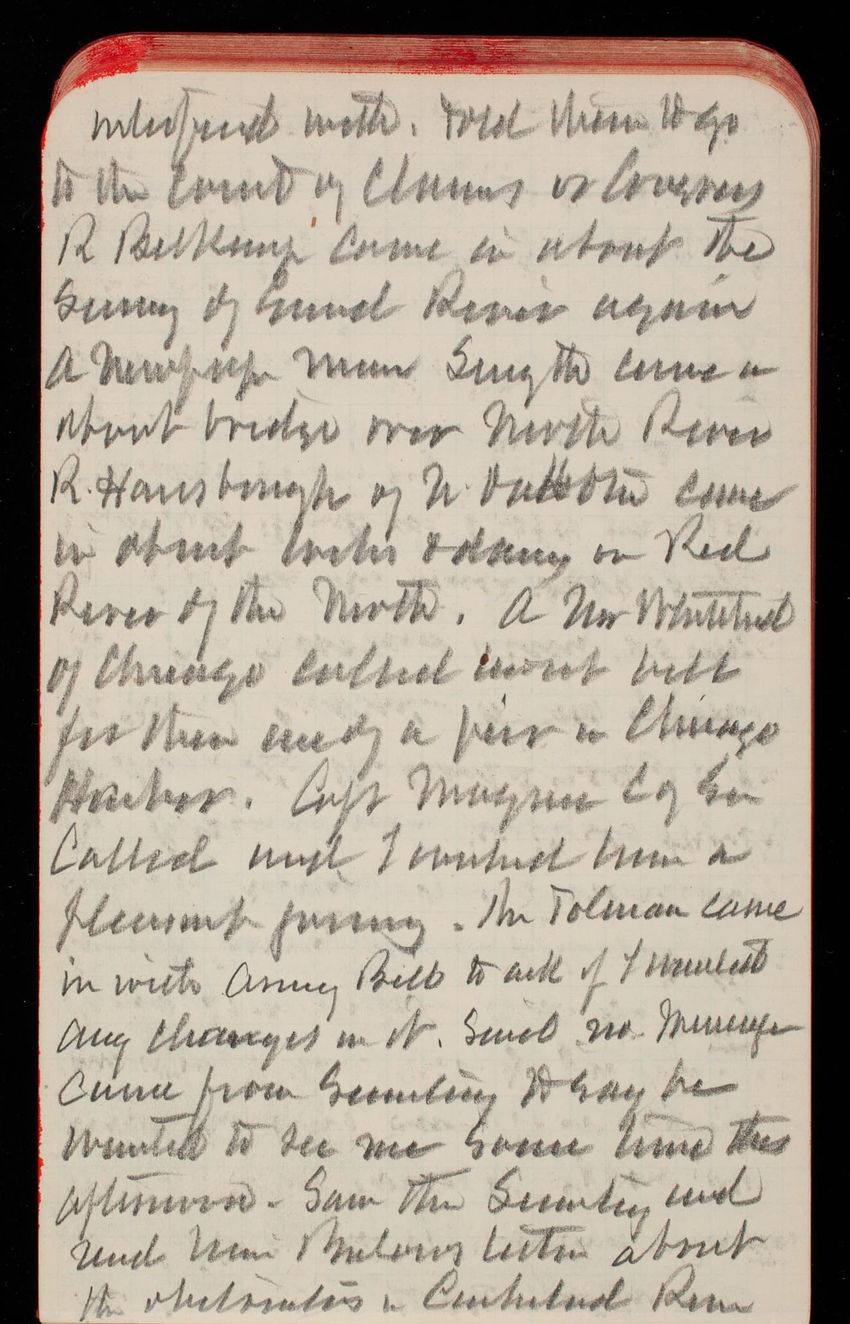 interfered with. Told them to go
to the Court of Claims or Congress
R Belknap came in about the
Survey of Grand River again
A Newspap man Smyth came in
about bridge over North River
R. Hansbrough of N. Dakota came
in about locks & dams on Red
River of the North. A Mr Whitehead
of Chicago called about bill
for them one of a pier in Chicago
Harbor. Capt Maguire C of En
Called and I wished him a
pleasant journey. Mr Tolman came
in with Army Bill to ask if I wanted
any changes in it. Said no. Messenger
came from Secretary to say he
wanted to see me some time this
afternoon. Saw the Secretary and
read him letter about
the obstructions in Cumberland River